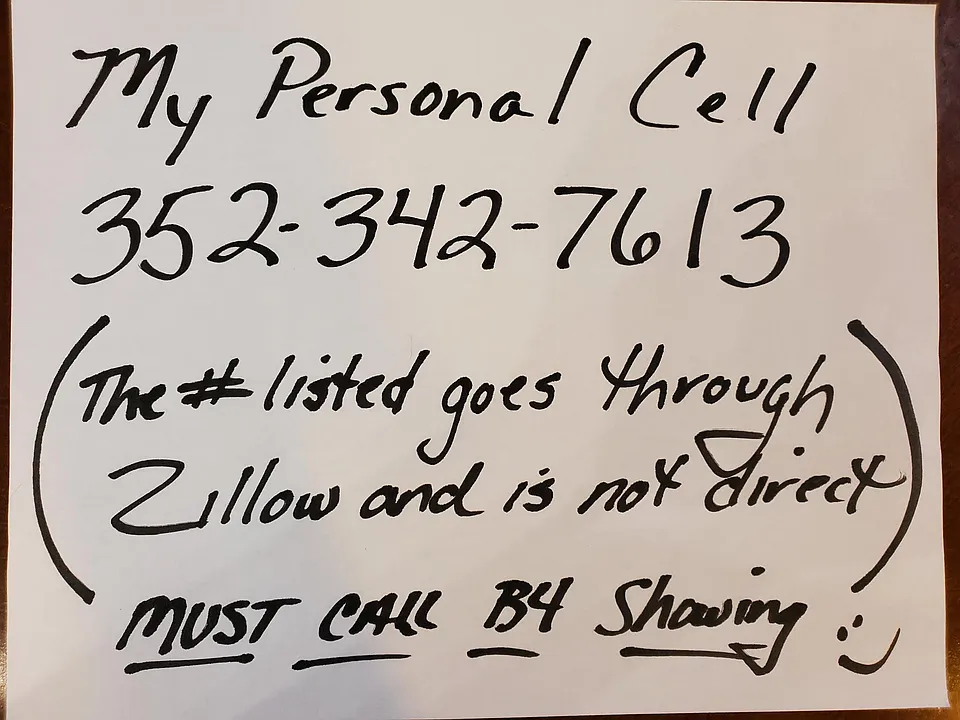 My Personal Cell
352-342-7613
(The # listed goes through
Zillow and is not direct)
MUST CALL B4 Showing :)